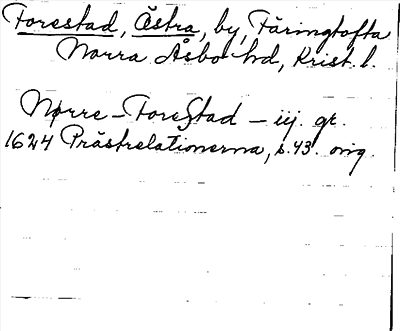 Forestad, Östra, by, Färingtofta
Norra Åsbo hd, Krist. l.
Nørre-Forestad - iij. gr.
1624 Prästrelationerna, s. 43. orig.